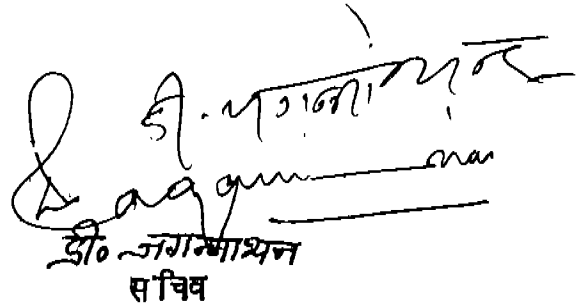 डी. जगन्नाथन
डी० जगन्नाथन
सचिव